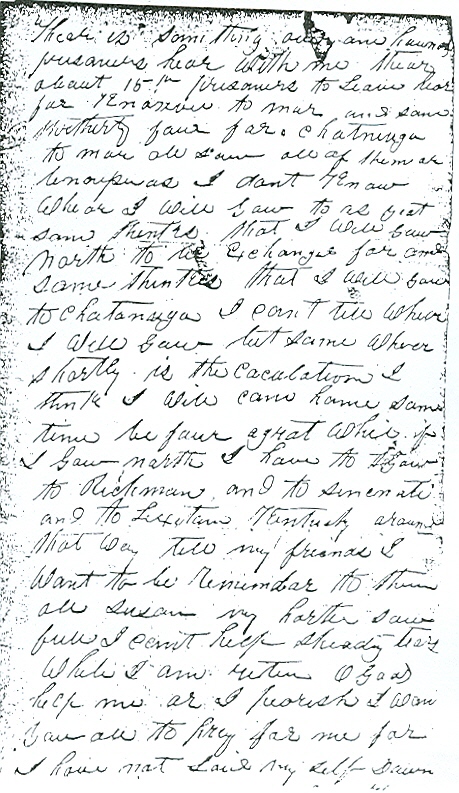 thear is something over one hawnd
prisamers hear with me thear
about 15 prisamers to Leave hear
for Knoxvill to mar and sam
thirty four far Chatnuga
to mar all saw all of them or
as I dant Know
Whear I will Gaw to as yeat
sam thinks that I will Gaw
north to be exchange for and
same thinks that I will Gaw
to Chatanuga I can't tell Whear
I will Gaw but same Whear
shortly is the Caculation I
think I will cam hame same
time be faur a grat While if
I Gaw north I have to Gaw
to Richman and to sincnati
and to Lexitan Kentucky around
that Way tell my friends I
Want to be Remembar to them
all susan my harte saw
full I can't help sheady tears
While I am riten O God
help me or I pearish I Wan
you all to prey far me far
I have not Laid my self dawn